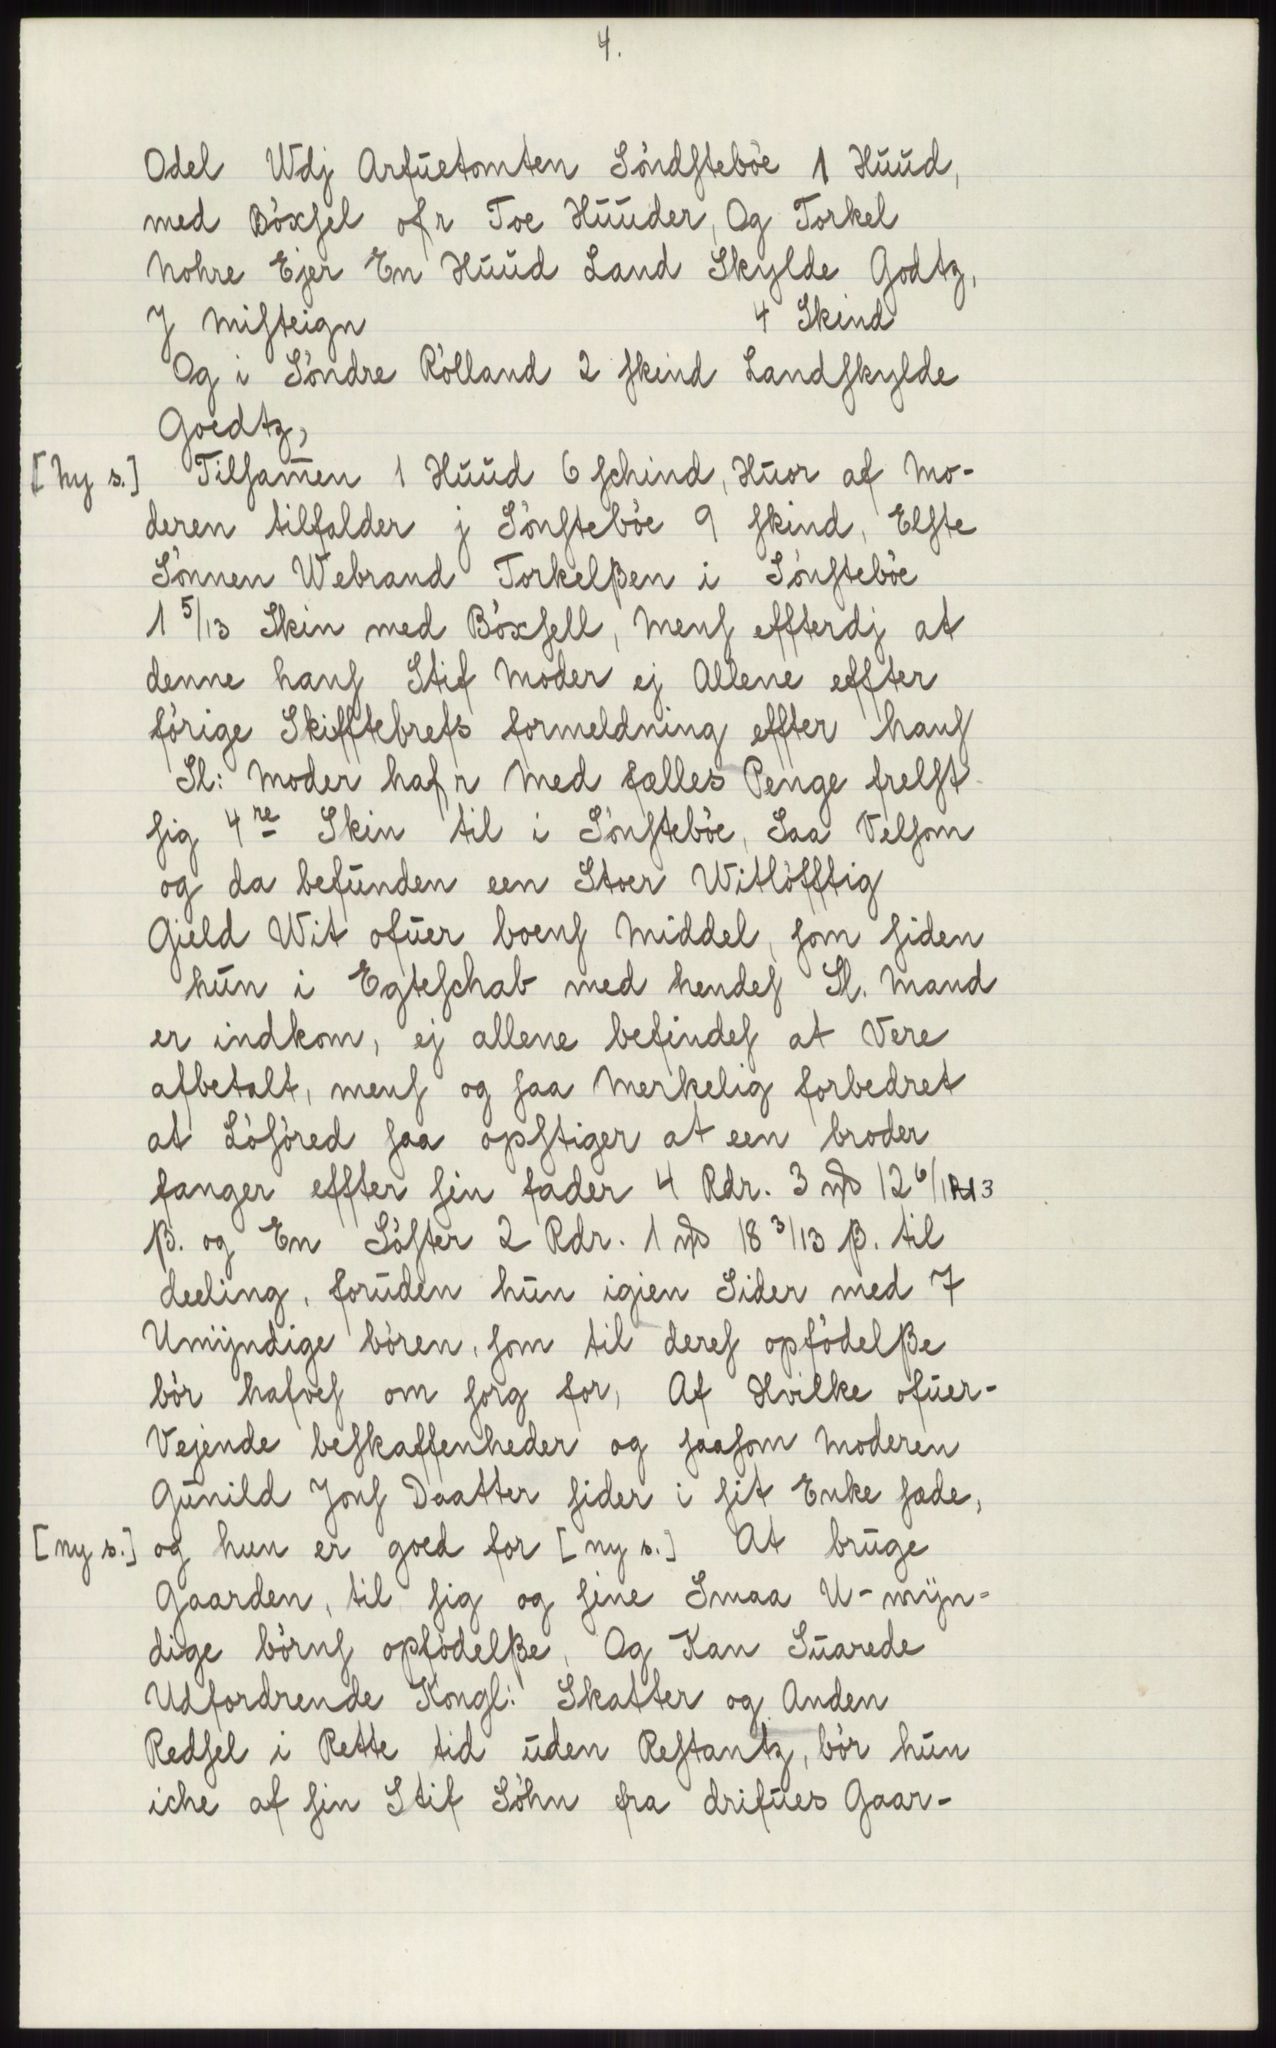 4.
Odel Wdj Arfuetomten Söndstebòe 1 Huud,
med Böxsel ofr Toe Huuder, Og Torkel
Nohre Ejer En Huud Land Skylde Godtz,
J Misteign 4 Skind
Og i Söndre Rölland 2 skind Landskylde
Goedtz,
[Ny s.] Tilsam̅en 1 Huud 6 schind, Huor af Mo-
deren tilfalder j Sönstebòe 9 skind, Elste
Sönnen Webrand Torkelßen i Sönstebòe
1 5/13 Skin med Böxsell, Mens effterdj at
denne hans Stif Moder ej Allene effter
förige Skifftebrefs formeldning effter hans
Sl: Moder hafr Med fælles Penge frelst
sig 4re Skin til i Sönstebòe, Saa Velsom
og da befunden een Stoer Witlöfftig
Gield Wit ofuer boens Middel, som siden
hun i Egteschab med hendes Sl. Mand
er indkom, ej allene befindes at Vere
afbetalt, mens og saa Merkelig forbedret
at Lösöred saa opstiger at een broder
fanger effter sin fader 4 Rdr. 3 mþ 12 6/13
β. og En Söster 2 Rdr. 1 mþ 18 3/13 β. til
deeling, foruden hun igien Sider med 7
Umÿndige bören, som til deres opfödelße
bör hafves om sorg for, Af Hvilke ofuer-
Vejende beskaffenheder og saasom Moderen
Gunild Jons Daatter sider i sit Enke sæde,
[ny s.] og hun er goed for [ny s.] At bruge
Gaarden, til sig og sine Smaa U-mÿn-
dige börns opfödelße, Og Kan Suarede
Udfordrende Kongl: Skatter og Anden
Redsel i Rette tid uden Restantz, bör hun
iche af sin Stif Söhn fra drifues Gaar-